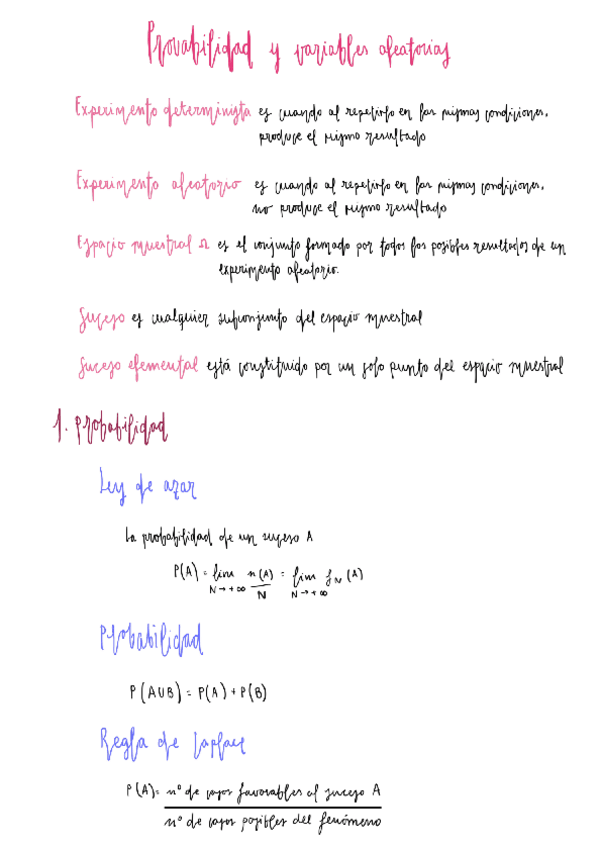 Probabilidad y variables aleatorias
Experimento determinista es cuando al repetirlo en las mismas condiciones,
produce el mismo resultado
Experimento aleatorio es cuando al repetirlo en las mismas condiciones,
no produce el mismo resultado
Espacio muestral Ω es el conjunto formado por todos los posibles resultados de un
experimento aleatorio.
Suceso es cualquier subconjunto del espacio muestral
Suceso elemental está constituido por un solo punto del espacio muestral
1. Probabilidad
Ley de azar
La probabilidad de un suceso A
P(A) = lim n(A) = lim f_N (A)
N→+∞ N N→+∞
Probabilidad
P(A∪B) = P(A) + P(B)
Regla de Laplace
P(A) = nº de casos favorables al suceso A
nº de casos posibles del fenómeno